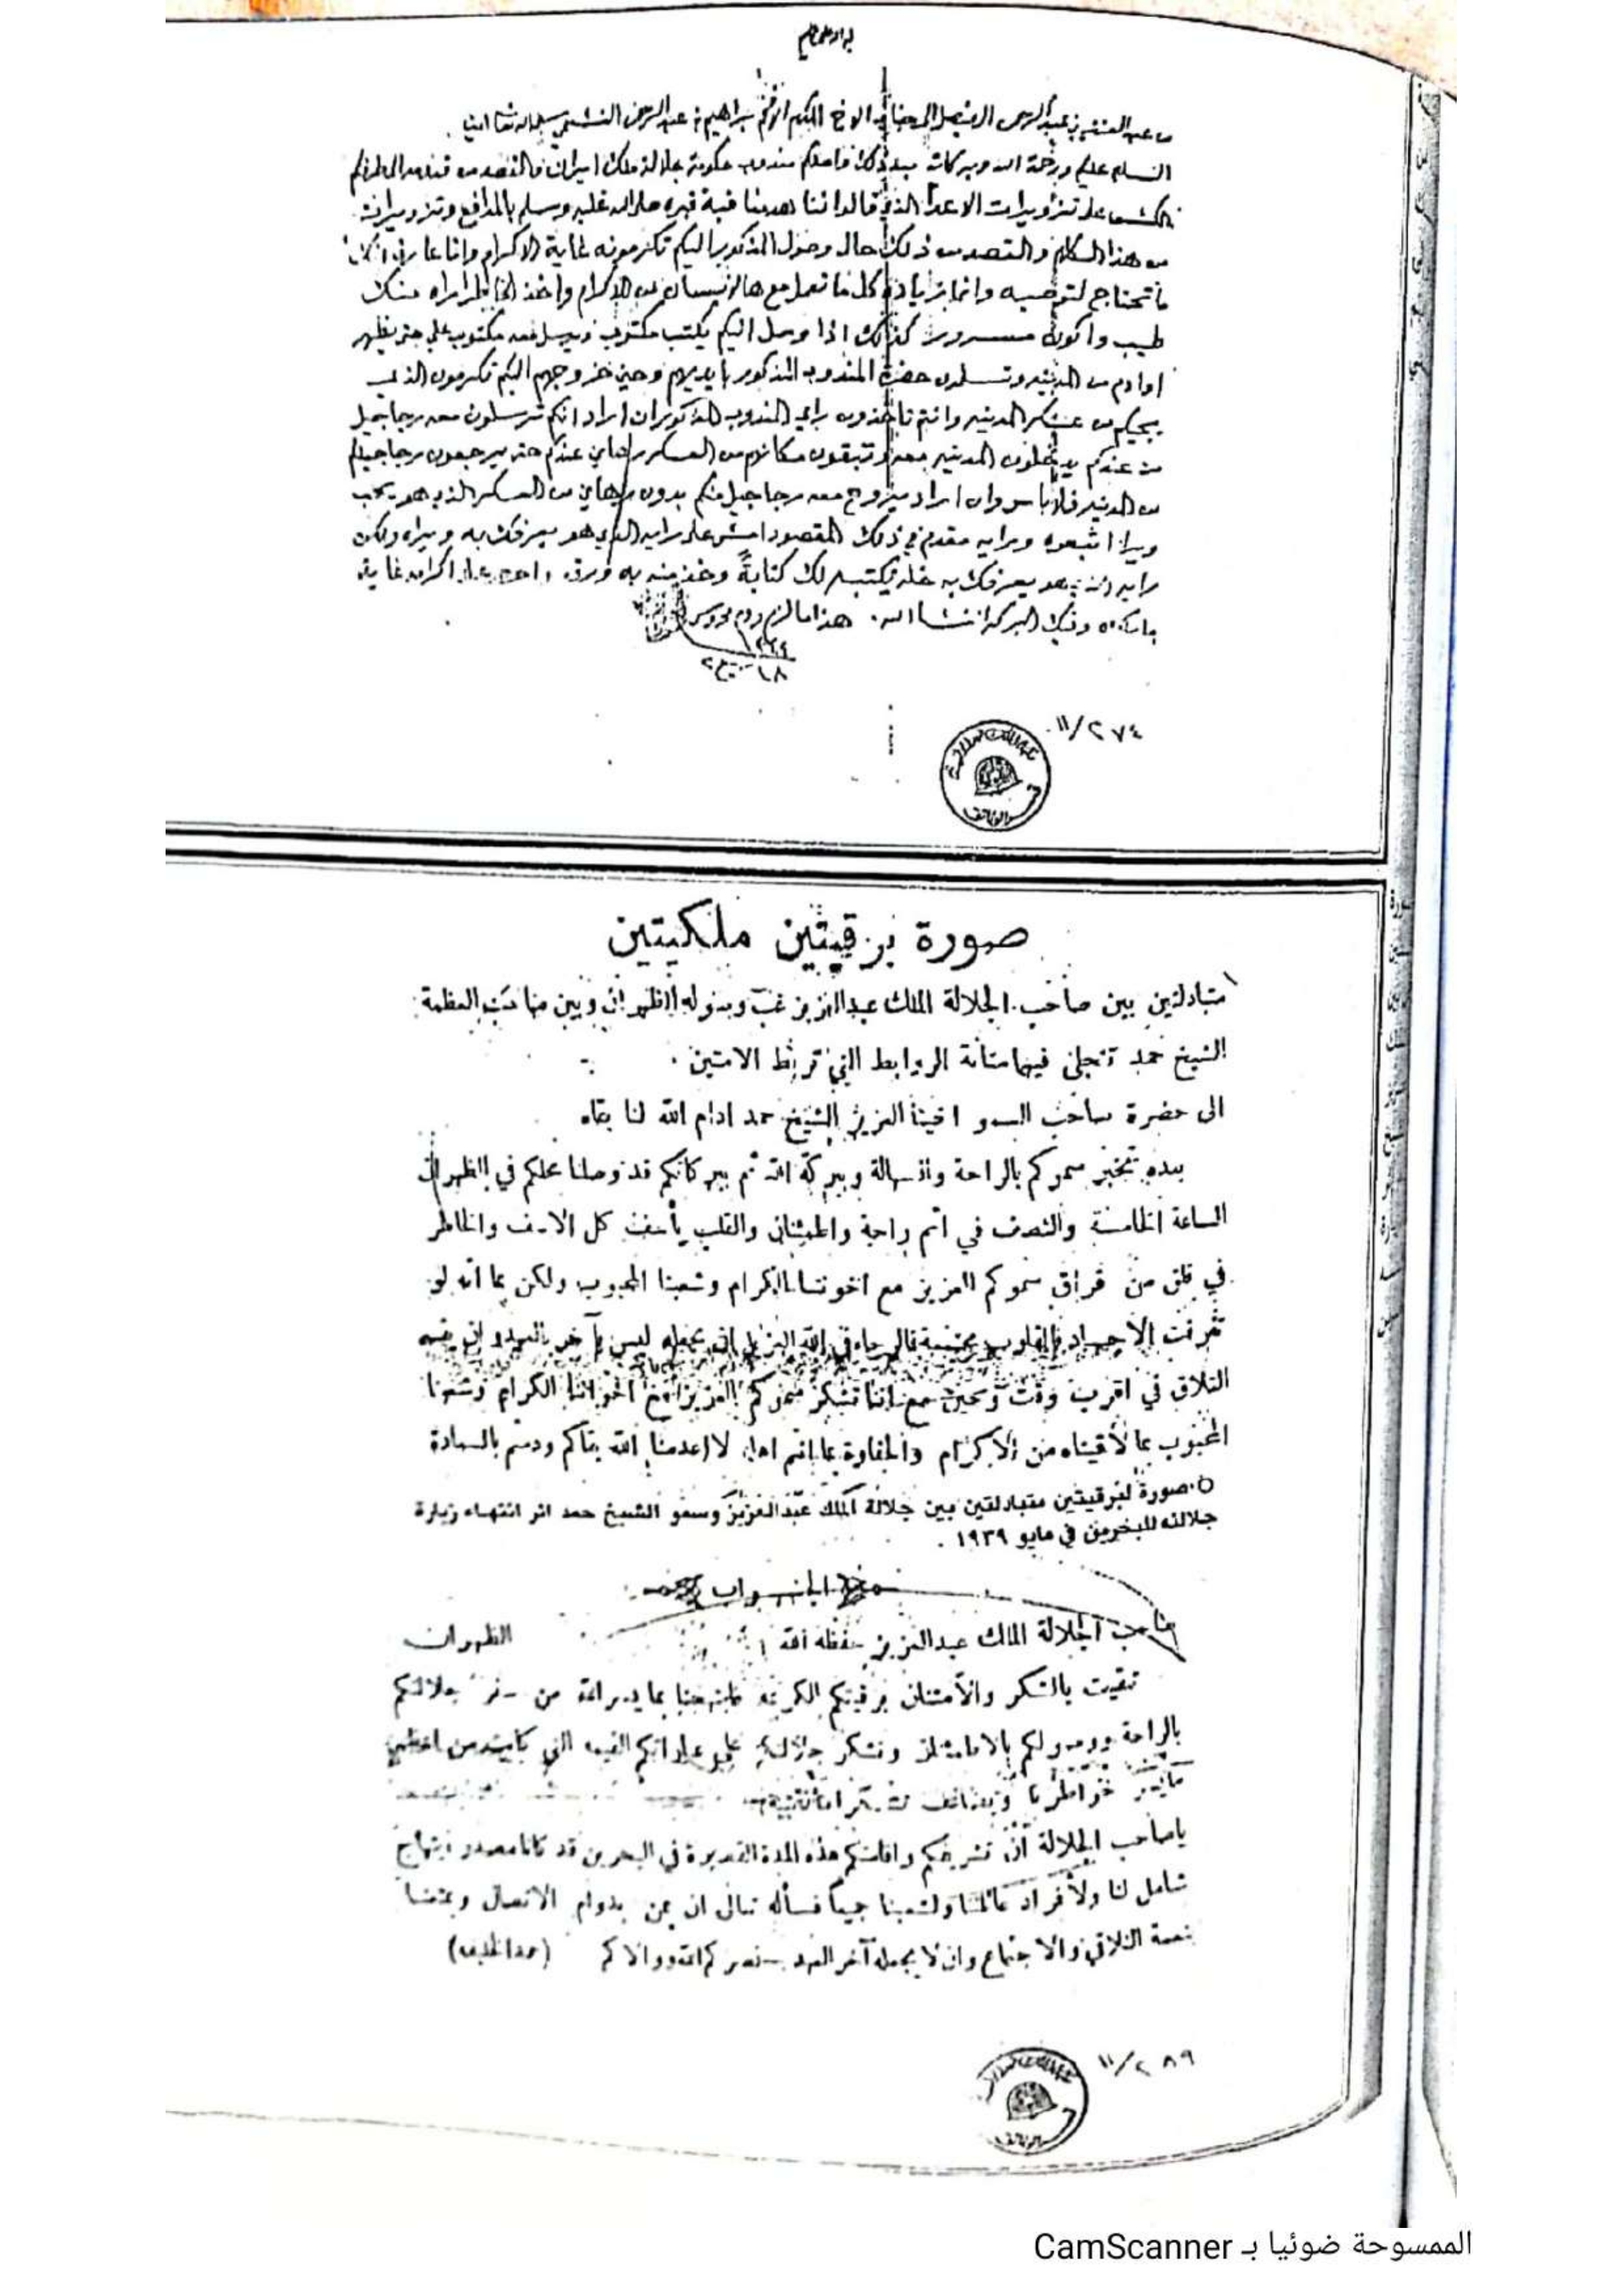 من عبد العزيز بن عبد الرحمن الفيصل إلى جناب الاخ المكرم الافخم ابراهيم بن عبد الرحمن النشمي سلمه الله تعا امين
السلام عليكم ورحمة الله وبركاته بعد ذلك واصلكم مندوب حكومة جلالة ملك ايران والقصد من قدومه الى طرفكم
الكشف على تزويرات الاعدا الذي قالوا اننا هدمنا قبة قبره صلى الله عليه وسلم بالمدافع وتزويرات
من هذا الكلام والقصد من ذلك حال وصول المذكور اليكم تكرمونه غاية الاكرام وانا عارف انك
ما تحتاج لتوصيه وانما زيادة كل ما تعمل مع هالانسان من الاكرام واخذ الخاطر اراه منك
طيب واكون مسرور كذلك اذا وصل اليكم يكتب مكتوب ويرسل معه مكتوب علي حتى يظهر
اوادم من المدينه وتسلمون حضرة المندوب المذكور بايديهم وحين خروجهم اليكم تكرمون الذي
يجيكم من عسكر المدينه وانتم تاخذون راي المندوب المذكور ان اراد انكم ترسلون معه رجاجيل
من عندكم يدخلون المدينه معه وتبقون مكانهم من العسكر رهاين عندكم حتى يرجعون رجاجيلكم
من المدينه فلا باس وان اراد يروح معه رجاجيل منكم بدون رهاين من العسكر الذي هو يحب
ويرا اتبعوه ورايه مقدم في ذلك المقصود امش على رايه الذي هو يعرفك به ويراه ولكن
رايه الذي هو يعرفك به خله يكتبه لك كتابةً وخذ منه به ورقه واحرص على اكرامه غاية
ما يمكن وفيك البركة انشا الله هذا ما لزم ودم محروس
١٣٤٤
١٨ ربيع ٢
١١/٢٧٤
صورة برقيتين ملكيتين
متبادلتين بين صاحب الجلالة الملك عبدالعزيز غب وصوله الظهران وبين صاحب العظمة
الشيخ حمد تتجلى فيهما متانة الروابط التي تربط الامتين
الى حضرة صاحب السمو اخينا العزيز الشيخ حمد ادام الله لنا بقاه
بيده نخبر سموكم بالراحة والسهالة وببركة الله ثم ببركاتكم قد وصلنا محلكم في الظهران
الساعة الخامسة والنصف في اتم راحة واطمئنان والقلب يأسف كل الاسف والخاطر
في قلق من فراق سموكم العزيز مع اخوتنا الكرام وشعبنا المحبوب ولكن بما انه لو
تفرقت الاجساد فالقلوب مجتمعة فالرجاء في الله العزيز ان يجعله ليس بآخر العهد وان يقسم
التلاق في اقرب وقت وحين مع اننا نشكر سموكم العزيز مع اخواننا الكرام وشعبنا
المحبوب بما لاقيناه من الاكرام والحفاوة بما انتم اهله لا اعدمنا الله بقاكم ودمتم بالسعادة
○ صورة لبرقيتين متبادلتين بين جلالة الملك عبدالعزيز وسمو الشيخ حمد اثر انتهاء زيارة
جلالته للبحرين في مايو ١٩٣٩ .
الجواب
صاحب الجلالة الملك عبدالعزيز حفظه الله الظهران
تلقيت بالشكر والامتنان برقيتكم الكريمة فابتهجنا بما يسر الله من سفر جلالتكم
بالراحة ووصولكم بالسلامة ونشكر جلالتكم على القيمه التي كانت من اعظم
خواطرنا
ياصاحب الجلالة ان تشريفكم واقامتكم هذه المدة القصيرة في البحرين قد كانا مصدر ابتهاج
شامل لنا ولأفراد عائلتنا ولشعبنا جميعاً فنسأله تعالى ان يمن بدوام الاتصال ويمنحنا
نعمة التلاقي والاجتماع وان لا يجعله آخر العهد نصركم الله ووالاكم (حمد الخليفه)
١١/٢٨٩
الممسوحة ضوئيا بـ CamScanner